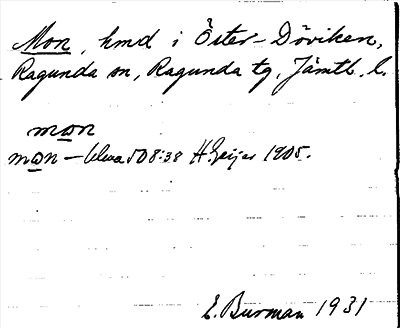 Mon, hmd i Öster-Döviken,
Ragunda sn, Ragunda tg, Jämtl. l.
mɷn
mɷn – 508:38 H. Geijer 1905.
E. Burman 1931